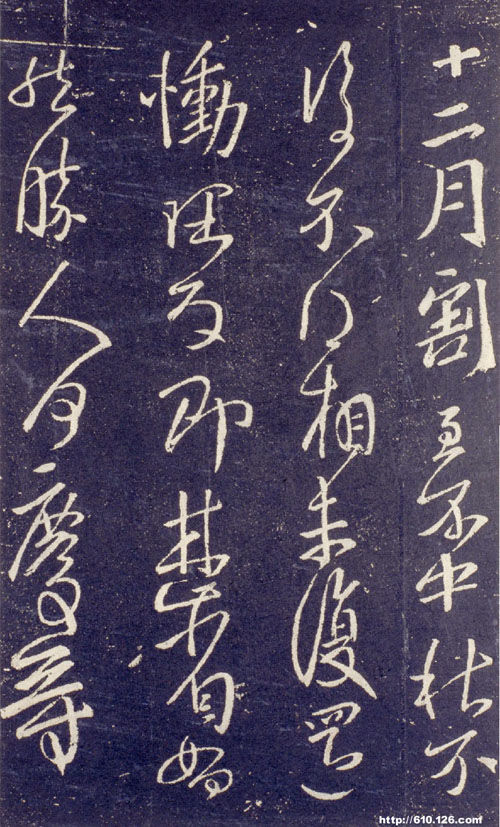 十二月割至不中秋不
復不得相未復還
慟理為即甚省如何
然勝人何慶等
http://610.126.com